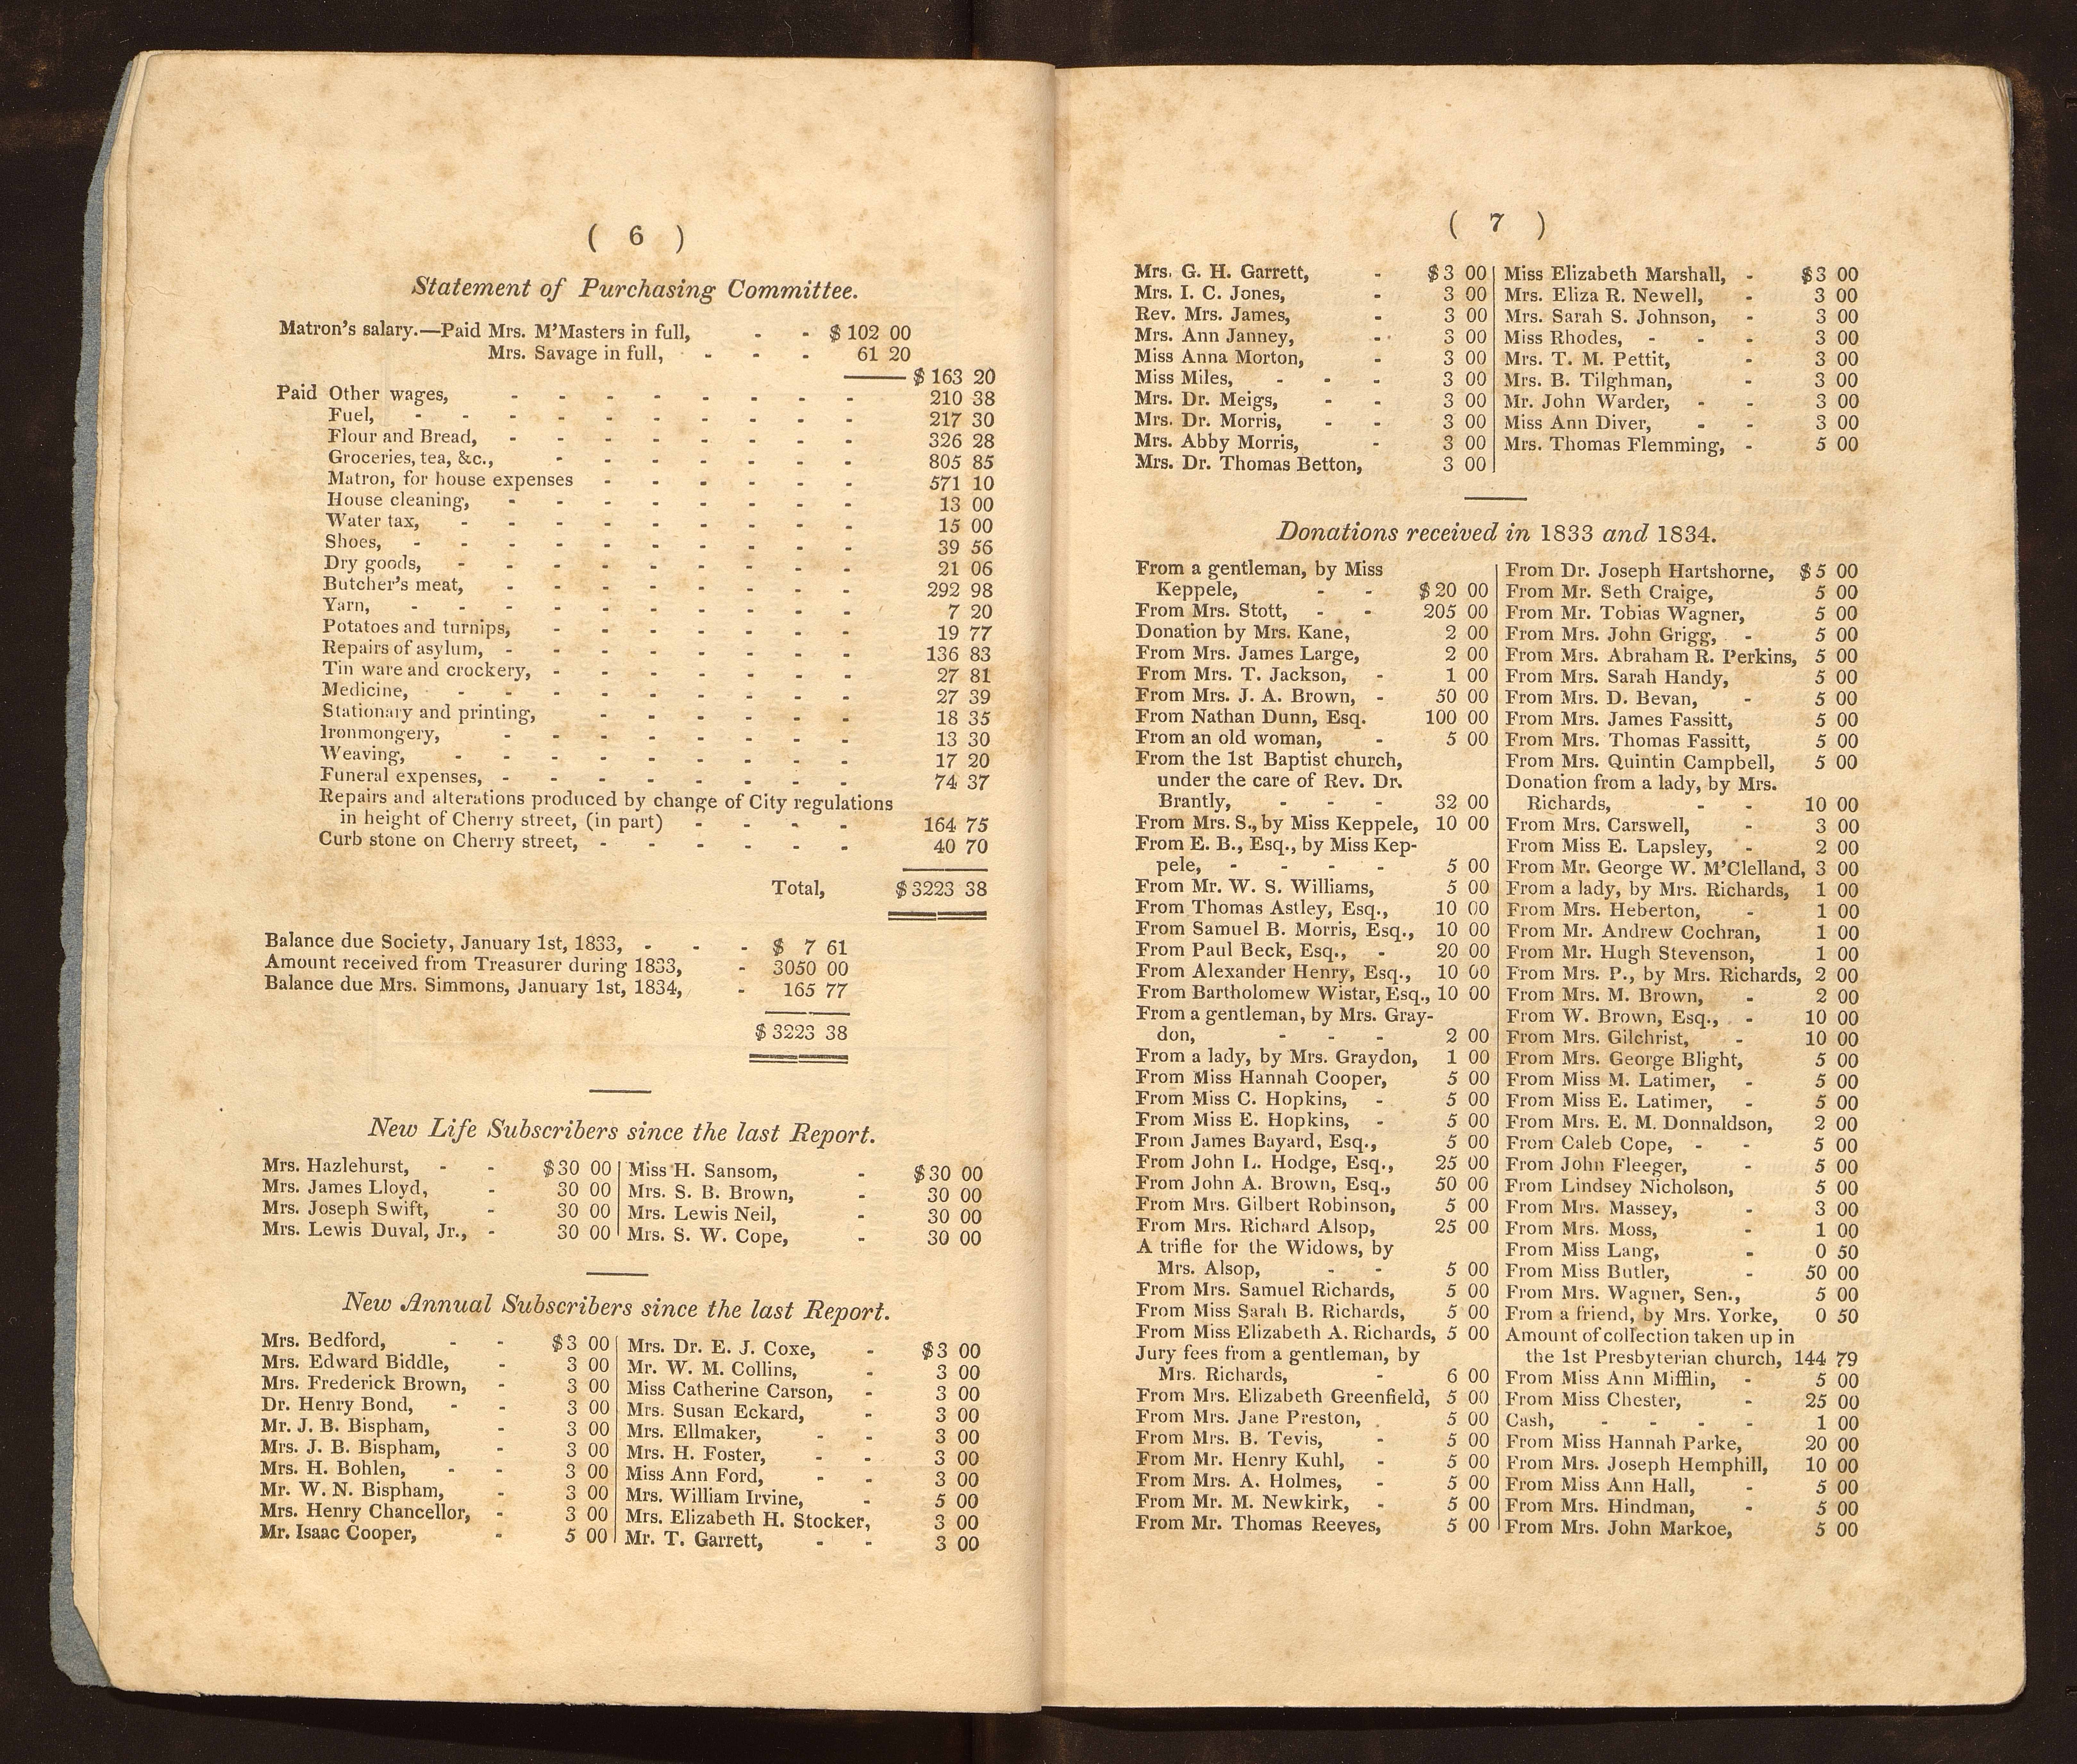 ( 6 )
Statement of Purchasing Committee.
Matron's salary.—Paid Mrs. M'Masters in full, - - $102 00
Mrs. Savage in full, - - - 61 20
$163 20
Paid Other wages, - - - - - - - - 210 38
Fuel, - - - - - - - - - - 217 30
Flour and Bread, - - - - - - - - 326 28
Groceries, tea, &c., - - - - - - - 805 85
Matron, for house expenses - - - - - - 571 10
House cleaning, - - - - - - - - 13 00
Water tax, - - - - - - - - - 15 00
Shoes, - - - - - - - - - - 39 56
Dry goods, - - - - - - - - - 21 06
Butcher's meat, - - - - - - - - 292 98
Yarn, - - - - - - - - - - 7 20
Potatoes and turnips, - - - - - - - 19 77
Repairs of asylum, - - - - - - - - 136 83
Tin ware and crockery, - - - - - - - 27 81
Medicine, - - - - - - - - - 27 39
Stationary and printing, - - - - - - 18 35
Ironmongery, - - - - - - - - 13 30
Weaving, - - - - - - - - - 17 20
Funeral expenses, - - - - - - - - 74 37
Repairs and alterations produced by change of City regulations
in height of Cherry street, (in part) - - - - 164 75
Curb stone on Cherry street, - - - - - - 40 70
Total, $3223 38
Balance due Society, January 1st, 1833, - - - $ 7 61
Amount received from Treasurer during 1833, - 3050 00
Balance due Mrs. Simmons, January 1st, 1834, - 165 77
$3223 38
New Life Subscribers since the last Report.
Mrs. Hazlehurst, - - $30 00
Mrs. James Lloyd, - 30 00
Mrs. Joseph Swift, - 30 00
Mrs. Lewis Duval, Jr., - 30 00
Miss H. Sansom, - $30 00
Mrs. S. B. Brown, - 30 00
Mrs. Lewis Neil, - 30 00
Mrs. S. W. Cope, - 30 00
New Annual Subscribers since the last Report.
Mrs. Bedford, - - $3 00
Mrs. Edward Biddle, - 3 00
Mrs. Frederick Brown, - 3 00
Dr. Henry Bond, - - 3 00
Mr. J. B. Bispham, - 3 00
Mrs. J. B. Bispham, - 3 00
Mrs. H. Bohlen, - - 3 00
Mr. W. N. Bispham, - 3 00
Mrs. Henry Chancellor, - 3 00
Mr. Isaac Cooper, - 5 00
Mrs. Dr. E. J. Coxe, - $3 00
Mr. W. M. Collins, - 3 00
Miss Catherine Carson, - 3 00
Mrs. Susan Eckard, - 3 00
Mrs. Ellmaker, - - 3 00
Mrs. H. Foster, - - 3 00
Miss Ann Ford, - - 3 00
Mrs. William Irvine, - 5 00
Mrs. Elizabeth H. Stocker, 3 00
Mr. T. Garrett, - - 3 00
( 7 )
Mrs. G. H. Garrett, - $3 00
Mrs. I. C. Jones, - 3 00
Rev. Mrs. James, - 3 00
Mrs. Ann Janney, - 3 00
Miss Anna Morton, - 3 00
Miss Miles, - - - 3 00
Mrs. Dr. Meigs, - - 3 00
Mrs. Dr. Morris, - - 3 00
Mrs. Abby Morris, - 3 00
Mrs. Dr. Thomas Betton, 3 00
Miss Elizabeth Marshall, - $3 00
Mrs. Eliza R. Newell, - 3 00
Mrs. Sarah S. Johnson, - 3 00
Miss Rhodes, - - - 3 00
Mrs. T. M. Pettit, - 3 00
Mrs. B. Tilghman, - 3 00
Mr. John Warder, - - 3 00
Miss Ann Diver, - - 3 00
Mrs. Thomas Flemming, - 5 00
Donations received in 1833 and 1834.
From a gentleman, by Miss
Keppele, - - $20 00
From Mrs. Stott, - - 205 00
Donation by Mrs. Kane, 2 00
From Mrs. James Large, 2 00
From Mrs. T. Jackson, - 1 00
From Mrs. J. A. Brown, - 50 00
From Nathan Dunn, Esq. 100 00
From an old woman, - 5 00
From the 1st Baptist church,
under the care of Rev. Dr.
Brantly, - - - 32 00
From Mrs. S., by Miss Keppele, 10 00
From E. B., Esq., by Miss Kep-
pele, - - - - 5 00
From Mr. W. S. Williams, 5 00
From Thomas Astley, Esq., 10 00
From Samuel B. Morris, Esq., 10 00
From Paul Beck, Esq., - 20 00
From Alexander Henry, Esq., 10 00
From Bartholomew Wistar, Esq., 10 00
From a gentleman, by Mrs. Gray-
don, - - - 2 00
From a lady, by Mrs. Graydon, 1 00
From Miss Hannah Cooper, 5 00
From Miss C. Hopkins, - 5 00
From Miss E. Hopkins, - 5 00
From James Bayard, Esq., 5 00
From John L. Hodge, Esq., 25 00
From John A. Brown, Esq., 50 00
From Mrs. Gilbert Robinson, 5 00
From Mrs. Richard Alsop, 25 00
A trifle for the Widows, by
Mrs. Alsop, - - 5 00
From Mrs. Samuel Richards, 5 00
From Miss Sarah B. Richards, 5 00
From Miss Elizabeth A. Richards, 5 00
Jury fees from a gentleman, by
Mrs. Richards, - 6 00
From Mrs. Elizabeth Greenfield, 5 00
From Mrs. Jane Preston, . 5 00
From Mrs. B. Tevis, - 5 00
From Mr. Henry Kuhl, - 5 00
From Mrs. A. Holmes, - 5 00
From Mr. M. Newkirk, - 5 00
From Mr. Thomas Reeves, 5 00
From Dr. Joseph Hartshorne, $5 00
From Mr. Seth Craige, 5 00
From Mr. Tobias Wagner, 5 00
From Mrs. John Grigg, - 5 00
From Mrs. Abraham R. Perkins, 5 00
From Mrs. Sarah Handy, 5 00
From Mrs. D. Bevan, - 5 00
From Mrs. James Fassitt, 5 00
From Mrs. Thomas Fassitt, 5 00
From Mrs. Quintin Campbell, 5 00
Donation from a lady, by Mrs.
Richards, - - 10 00
From Mrs. Carswell, - 3 00
From Miss E. Lapsley, - 2 00
From Mr. George W. M'Clelland, 3 00
From a lady, by Mrs. Richards, 1 00
From Mrs. Heberton, - 1 00
From Mr. Andrew Cochran, 1 00
From Mr. Hugh Stevenson, 1 00
From Mrs. P., by Mrs. Richards, 2 00
From Mrs. M. Brown, - 2 00
From W. Brown, Esq., - 10 00
From Mrs. Gilchrist, - 10 00
From Mrs. George Blight, 5 00
From Miss M. Latimer, - 5 00
From Miss E. Latimer, - 5 00
From Mrs. E. M. Donnaldson, 2 00
From Caleb Cope, - - 5 00
From John Fleeger, - 5 00
From Lindsey Nicholson, 5 00
From Mrs. Massey, - 3 00
From Mrs. Moss, - 1 00
From Miss Lang, - 0 50
From Miss Butler, - 50 00
From Mrs. Wagner, Sen., 5 00
From a friend, by Mrs. Yorke, 0 50
Amount of collection taken up in
the 1st Presbyterian church, 144 79
From Miss Ann Mifflin, - 5 00
From Miss Chester, - 25 00
Cash, - - - - 1 00
From Miss Hannah Parke, 20 00
From Mrs. Joseph Hemphill, 10 00
From Miss Ann Hall, - 5 00
From Mrs. Hindman, - 5 00
From Mrs. John Markoe, 5 00